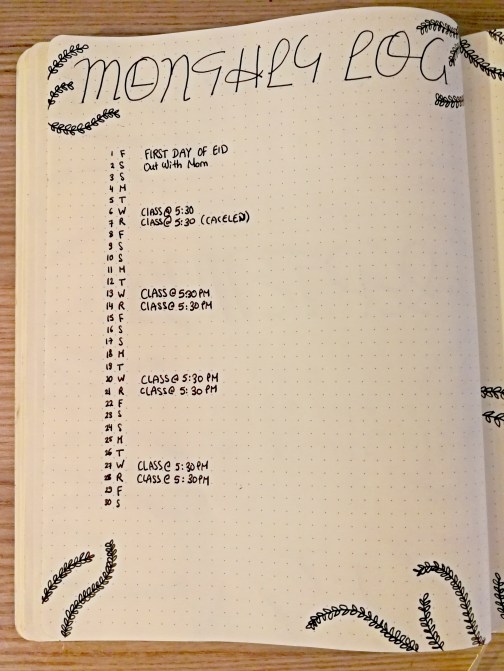 MONTHLY LOG
1 F FIRST DAY OF EID
2 S Out With Mom
3 S
4 M
5 T
6 W CLASS @ 5:30
7 R CLASS@ 5:30 (CACELED)
8 F
9 S
10 S
11 M
12 T
13 W CLASS @ 5:30 PM
14 R ClASS@ 5:30 PM
15 F
16 S
17 S
18 M
19 T
20 W CLASS @ 5:30 PM
21 R CLASS@ 5:30 PM
22 F
23 S
24 S
25 M
26 T
27 W CLASS@ 5:30PM
28 R CLASS @ 5:30PM
29 F
30 S